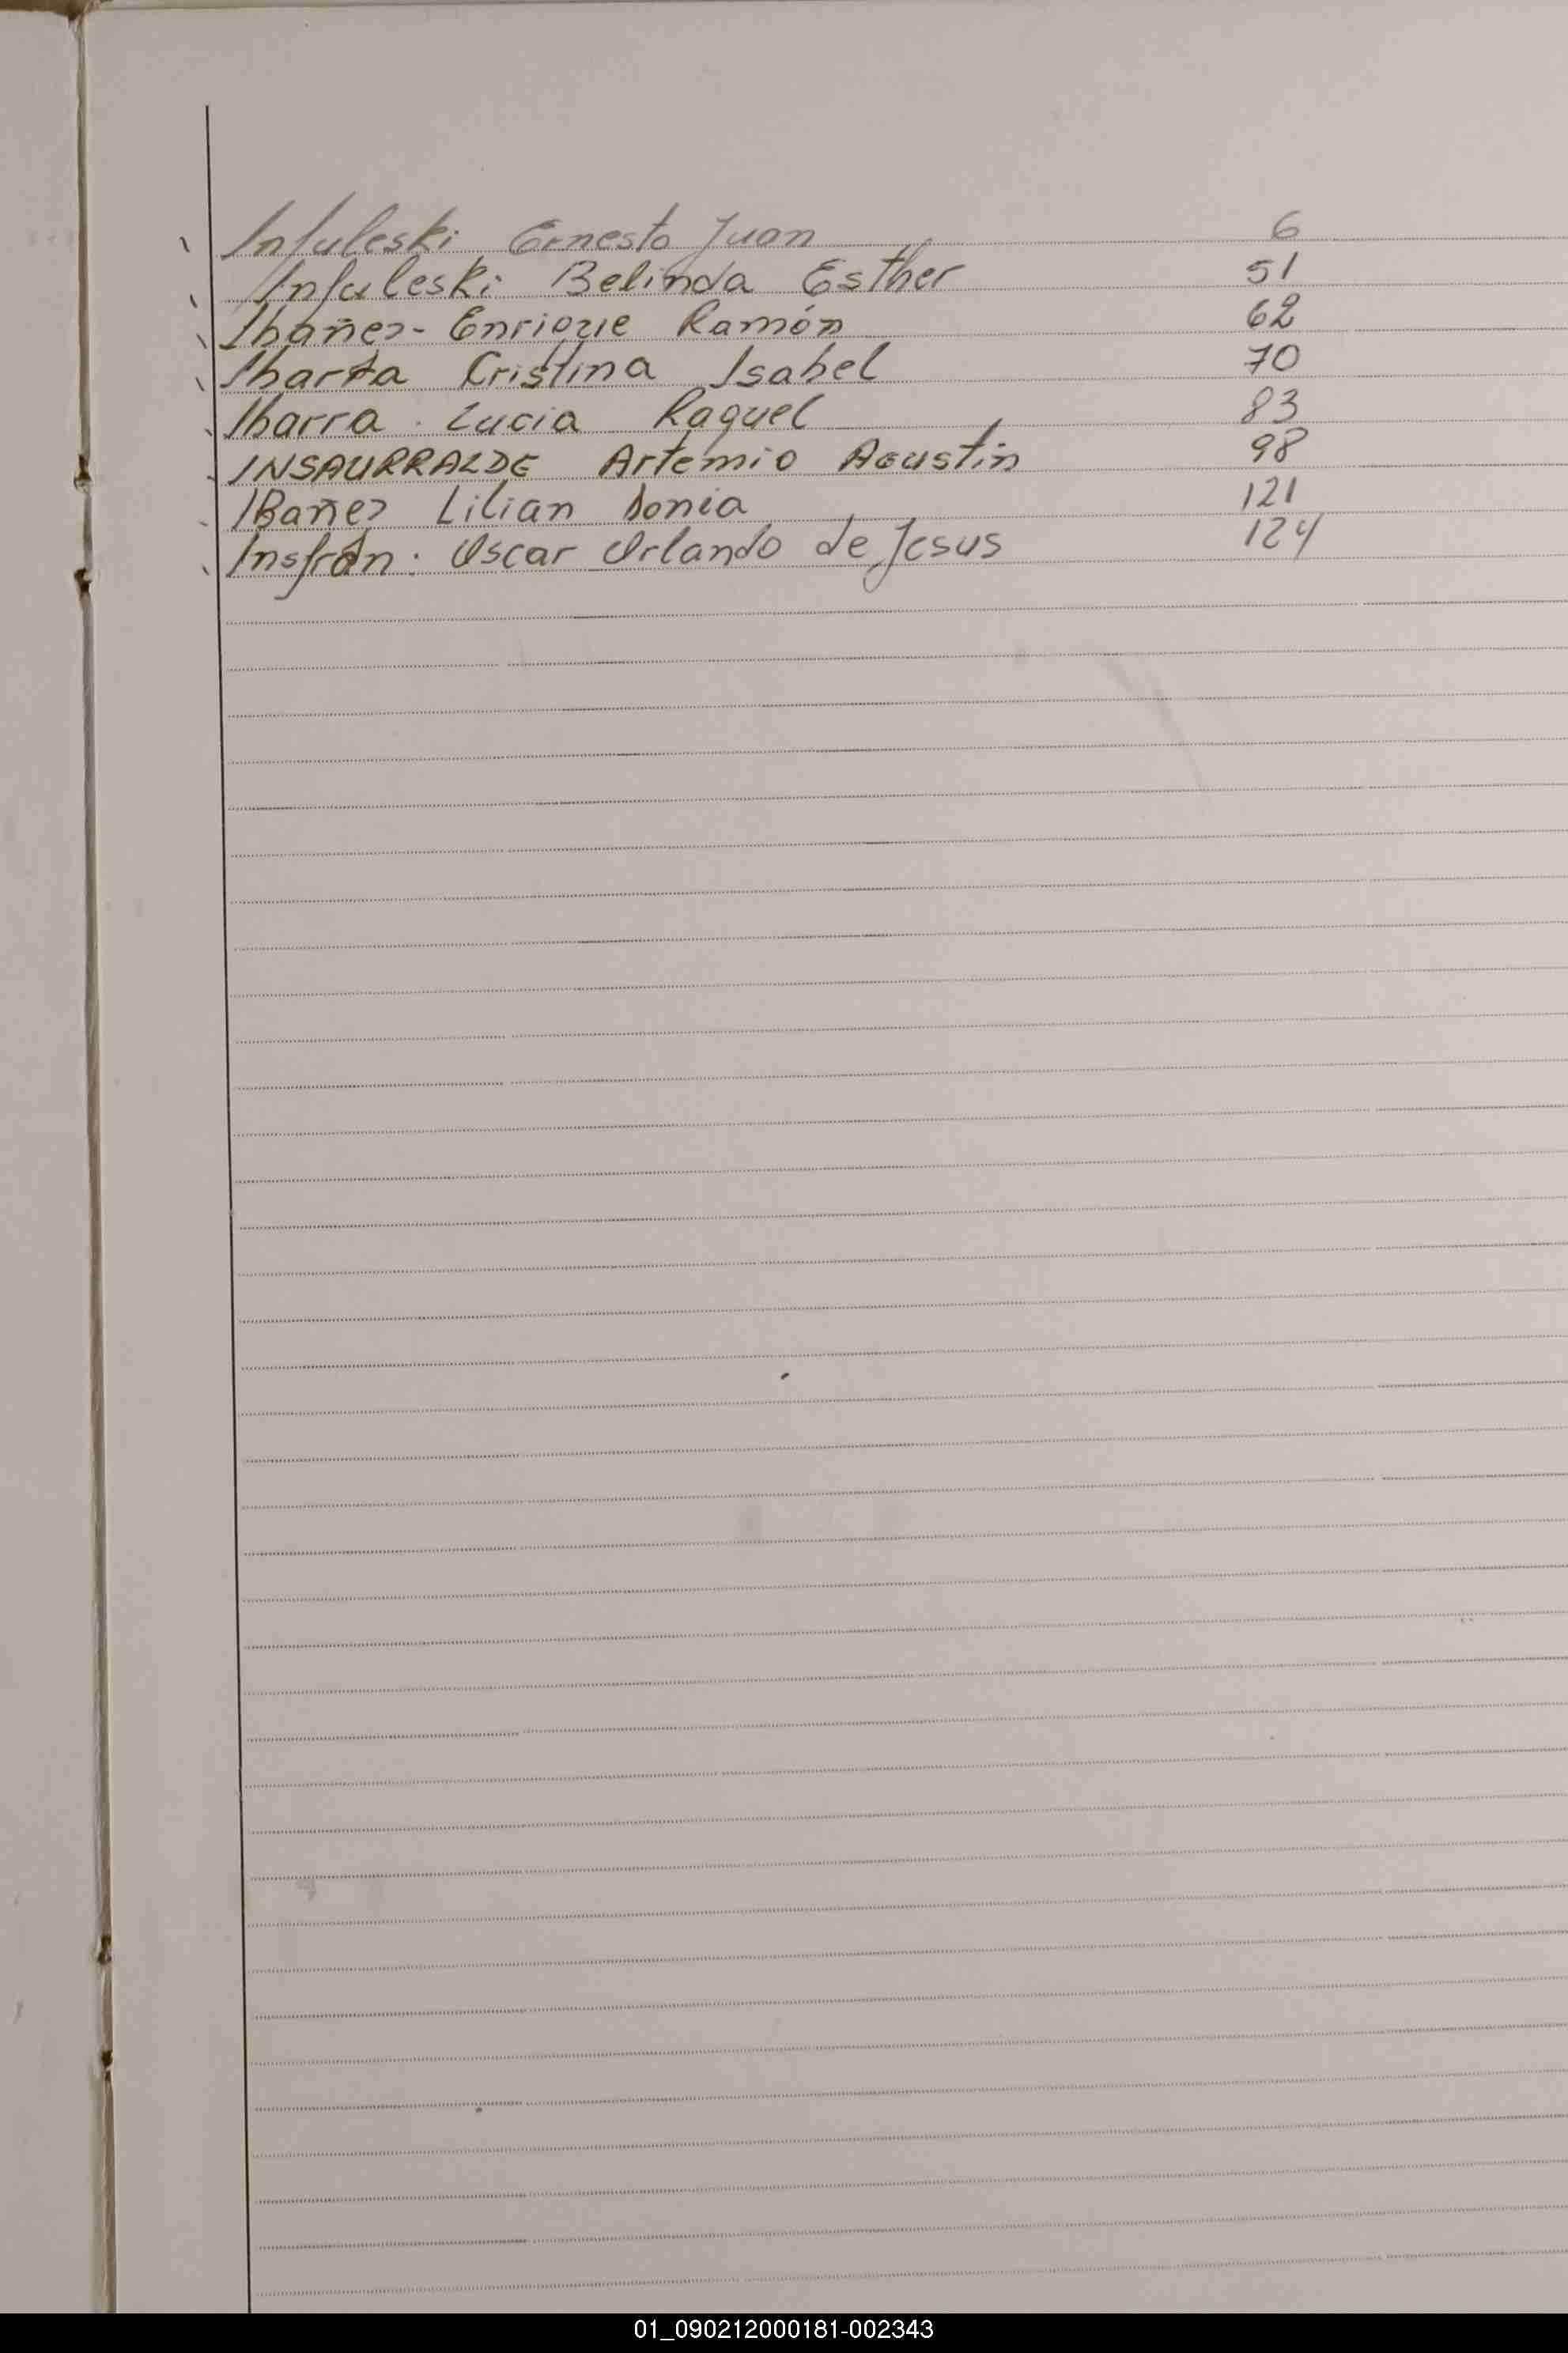 Infuleski Ernesto Juan 6
Infuleski Belinda Esther 51
Ibañez - Enrique Ramón 62
Ibarra Cristina Isabel 70
Ibarra . Lucia Raquel 83
INSAURRALDE Artemio Agustín 98
IBañez Lilian Sonia 121
Insfrán . Oscar Orlando de Jesus 124
01_090212000181-002343